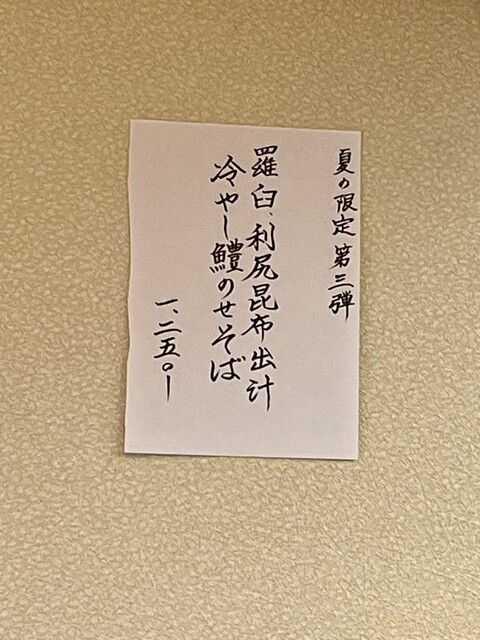 夏の限定第三弾
羅臼、利尻昆布出汁
冷やし鱧のせそば
一、二五〇ー